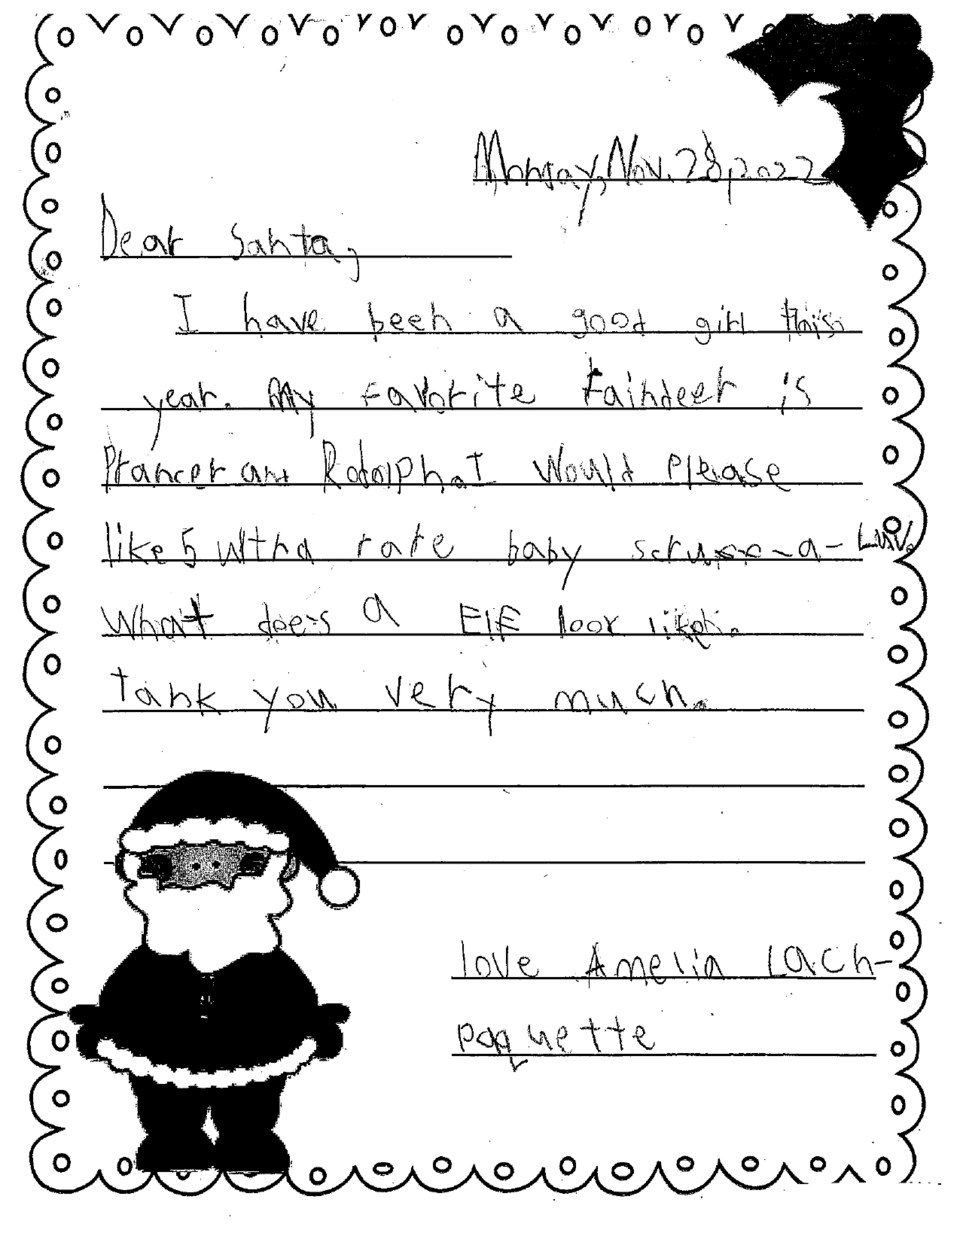 Monday, Nov. 28, 2022
Dear Santa,
I have been a good girl this
year. My favorite raindeer is
Prancer and Rodolph. I would please
like 5 ultra rare baby scruff-a-Luv.
What does a Elf look like.
tank you very much.
love Amelia Lach-
paquette